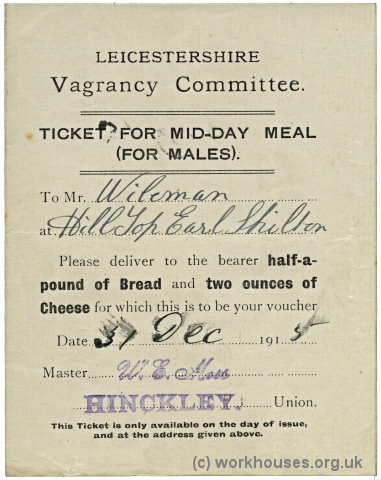 LEICESTERSHIRE
Vagrancy Committee.
TICKET FOR MID-DAY MEAL
(FOR MALES).
To Mr. Wileman
at Hill Top Earl Shilton
Please deliver to the bearer half-a-
pound of Bread and two ounces of
Cheese for which this is to be your voucher
Date 31 Dec 1915
Master W. E. Moss
HINCKLEY. Union.
This Ticket is only available on the day of issue,
and at the address given above.
(c) workhouses.org.uk